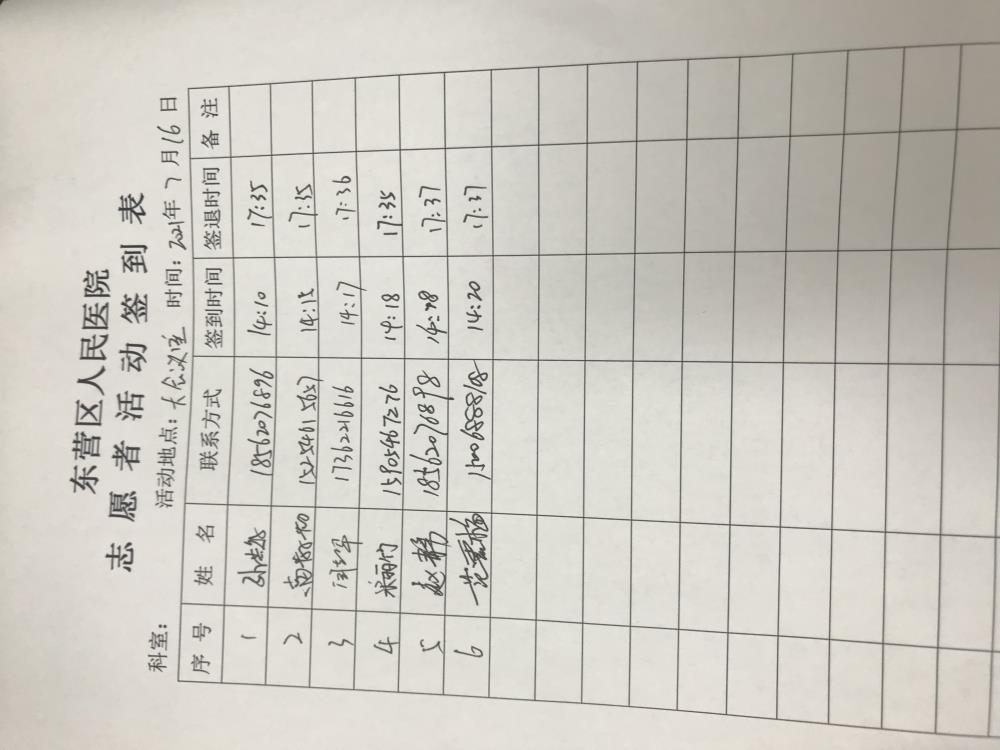 东营区人民医院
志愿者活动签到表
科室： 活动地点：大会议室 时间：2021年7月16日
序号 姓名 联系方式 签到时间 签退时间 备注
1 18562076896 14:10 17:35
2 15254615657 14:15 17:35
3 17362216616 14:17 17:36
4 宋丽竹 15905467276 14:18 17:35
5 赵静 18562076898 14:28 17:37
6 14:20 17:37